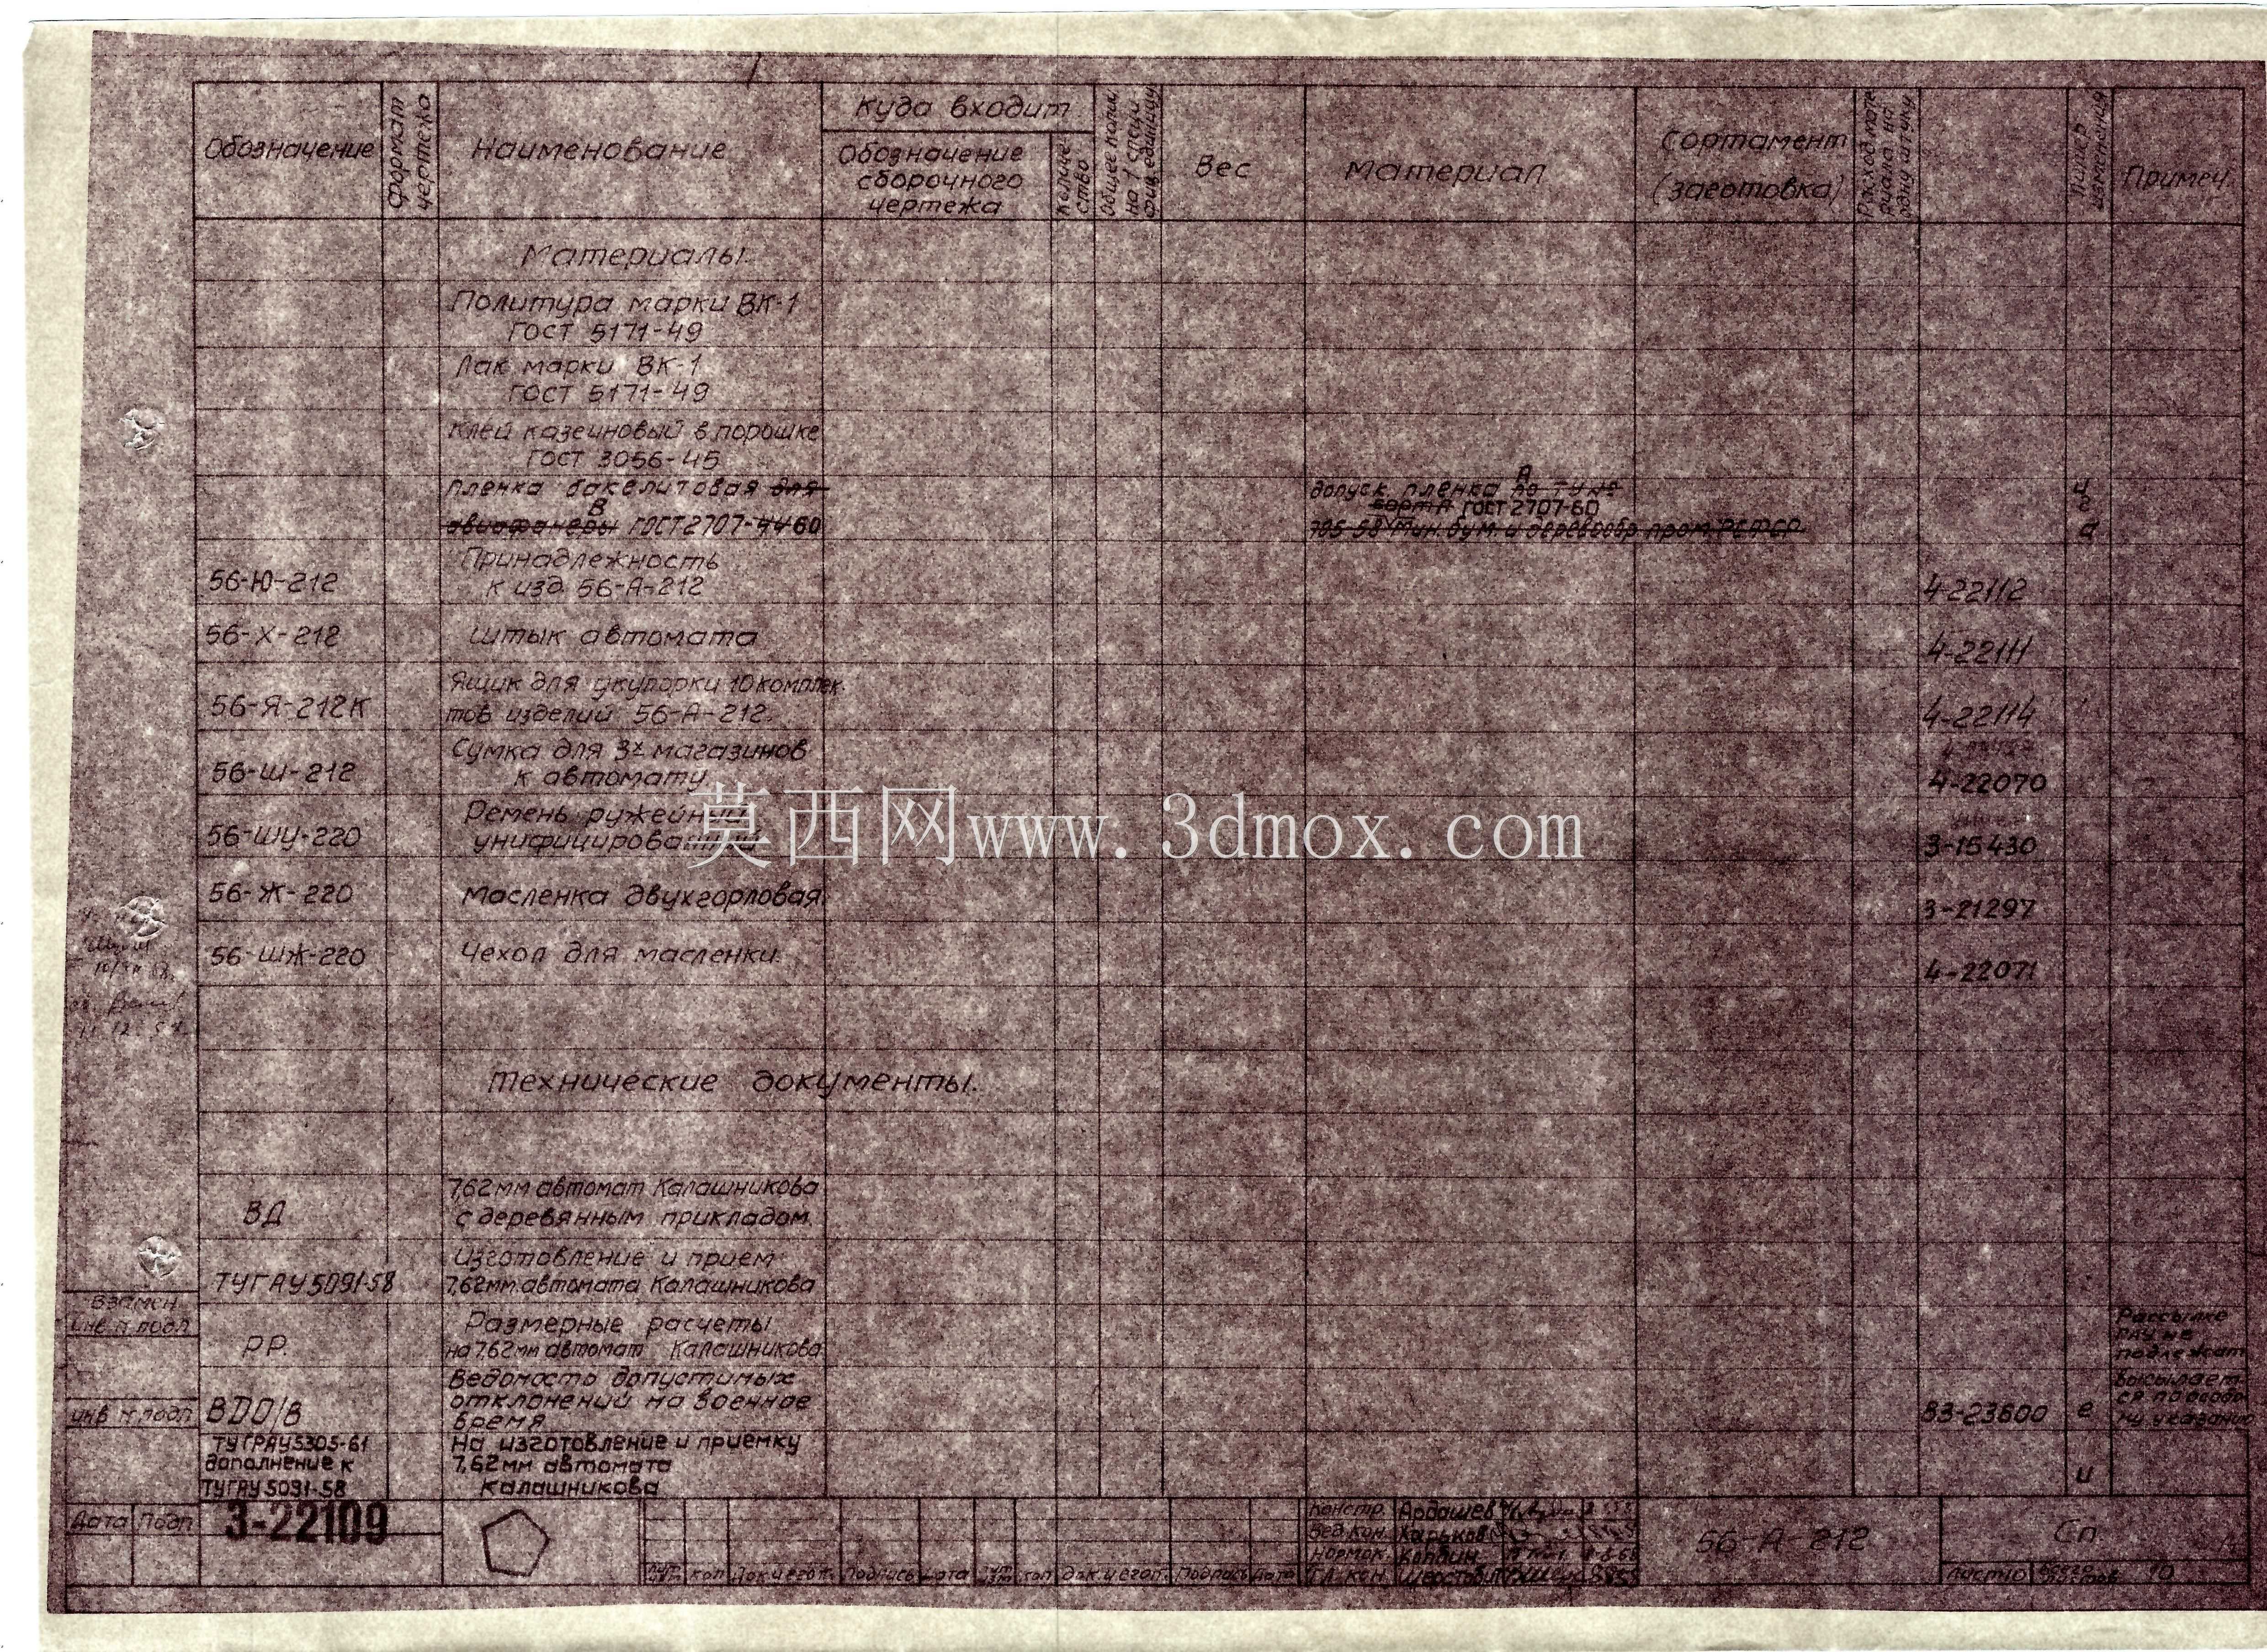 Обозначение
Формат
чертежа
Наименование
Куда входит
Обозначение
сборочного
чертежа
Количе-
ство
Общее колич.
на 1 специ
фиц. единицу
Вес
Материал
Сортамент
(заготовка)
Расход мате
риала на
одну штуку
Литер
изменения
Примеч.
Материалы.
Политура марки ВК-1
ГОСТ 5171-49
Лак марки ВК-1
ГОСТ 5171-49
Клей казеиновый в порошке
ГОСТ 3056-45
Пленка бакелитовая для
В
авиафанеры ГОСТ 2707-44 60
А
допуск. пленка по ТУ №
сорт А ГОСТ 2707-60
705-58 Мин. бум. и деревообр. пром. РСФСР
и
г
а
56-Ю-212
Принадлежность
к изд. 56-А-212
4-22112
56-Х-212
Штык автомата
4-22111
56-Я-212К
Ящик для укупорки 10 комплек-
тов изделий 56-А-212.
4-22114
56-Ш-212
Сумка для 3х магазинов
к автомату
4-22070
56-ШУ-220
Ремень ружейный
унифицированный
3-15430
莫西网www.3dmox.com
56-Ж-220
Масленка двухгорловая
3-21297
56-ШЖ-220
Чехол для масленки.
4-22071
Технические документы.
ВД
7,62мм автомат Калашникова
с деревянным прикладом.
ТУГАУ5091-58
Изготовление и прием
7,62мм автомата Калашникова
РР
Размерные расчеты
на 7,62мм автомат Калашникова
Рассылке
ГАУ не
подлежат
ВДО/В
Ведомость допустимых
отклонений на военное
время
83-23600
е
Высылает-
ся по особо-
му указанию
ТУГРАУ5305-61
дополнение к
ТУГАУ5091-58
На изготовление и приемку
7,62мм автомата
Калашникова
и
Взамен
инв № подл
инв № подл
Дата Подп
3-22109
кол Док.и егоп. Подпись Дата
кол Док.и егоп. Подпись Дата
Констр. Ардашев
Вед.кон. Харьков
Нормок. Колбин
Гл. кон.
56-А-212
Сп
Лист 10
Всего
листов 10